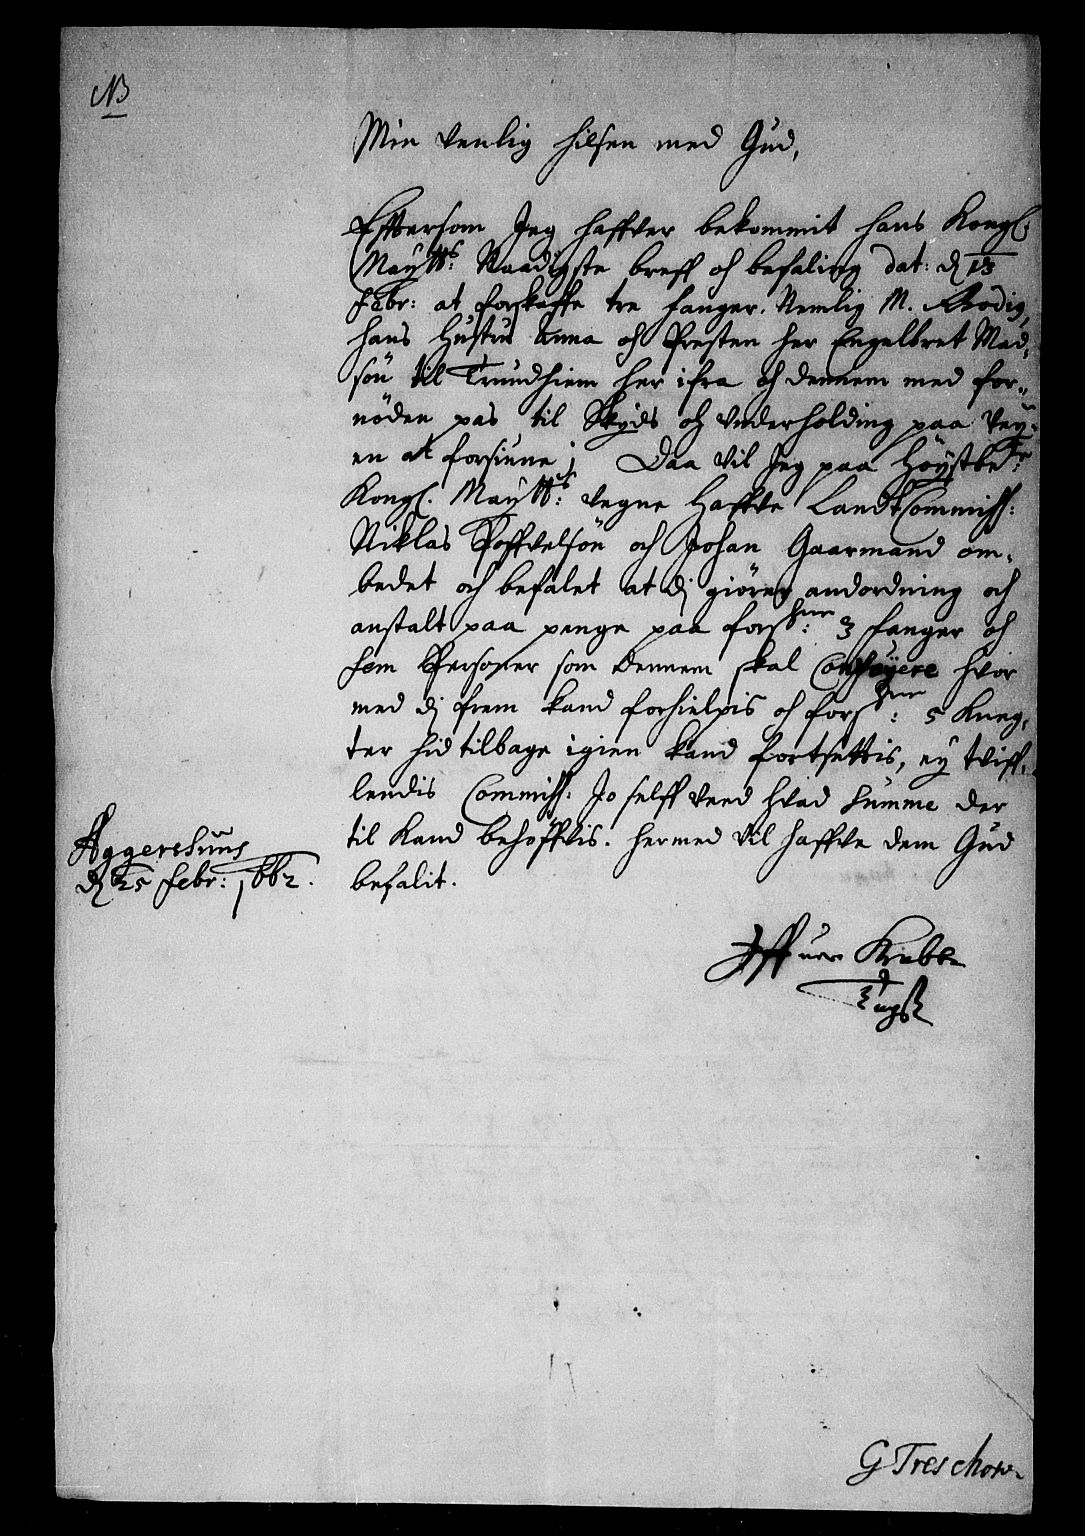 NB
Min venlig hilsen med Gud,
Efftersom Jeg haffver bekommit hans Kongl:
Maytts: Naadigste breff och befaling dat: d 13
Febr: at forskaffe tre fanger. Nemlig M. Brodig,
hans Hustru Anna och Presten her Engelbret Mad-
sön til Trundhiem her ifra och dennem med for-
nöden pas til Skyds och underholding paa vey-
en at forsiune; Daa vil Jeg paa Höystbete:
Kongl. Maytts: vegne haffve LandtCommiss:
Niklas Poffvelsön och Johan Gaarmand om-
bedet och befalet at dj giörer andordning och
anstalt paa penge paa forschne: 3 fanger och
fem Personer som dennem skal Confoyere hvor
med dj frem kand forhielpis och forschne: 5 Kneg-
ter hid tilbage igien kand fortsettis, ey tviff-
lendis Commiss: Jo selff veed hvad summe der
til kand behöffvis. hermed vil haffve dem Gud
befalit.
Aggershuus
d 25 febr: 1662.
Iffuer Krabbe
G Treschow